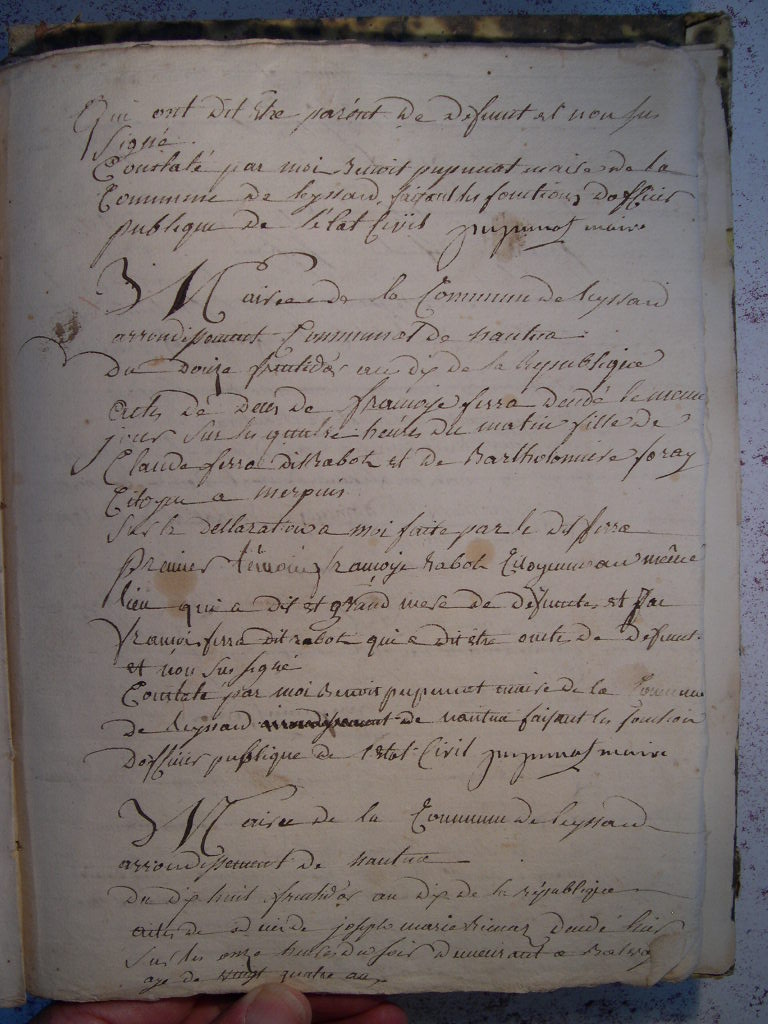 Qui ont dit être parent de defunt et non su
signé.
Constaté par moi Benoit pupunat maire de la
Commune de leyssard, faisant les fonctions dofficier
publique de létat Civil pupunat maire
Mairie de la Commune de leyssard
arrondissement Communal de nantua
du douze fructidor an dix de la Republique
acte de deces de françoise ferra decedé le meme
jour sur les quatre heures du matin fille de
Claude ferra dit Rabot et de Bartholomiere foray
Citoyen a
sur la dellaration a moi faite par le dit ferra
premier témoin françoise Rabot Citoyenne au même
lieu qui a dit et grand mere de defuncte et par
françois ferra dit rabot qui a dit être oncle de defunt
et non su signé
Constaté par moi Benoit pupunat maire de la Commune
de Leyssard arrondissement de nantua faisant les fonction
dofficier publique de létat Civil pupunat maire
Mairie de la Commune de leyssard
arrondissement de nantua
du dix huit fructidor an dix de la république
acte de deces de joseph marie decedé hier
sur les onze heures du soir demeurant a
age de vingt quatre an